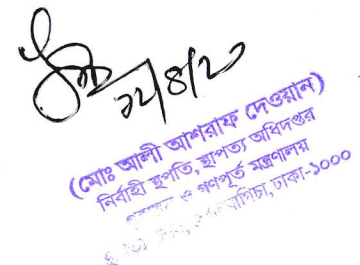 ১২/৪/২০
(মোঃ আলী আশরাফ দেওয়ান)
নির্বাহী স্থপতি, স্থাপত্য অধিদপ্তর
ও গণপূর্ত মন্ত্রণালয়
ঢাকা-১০০০